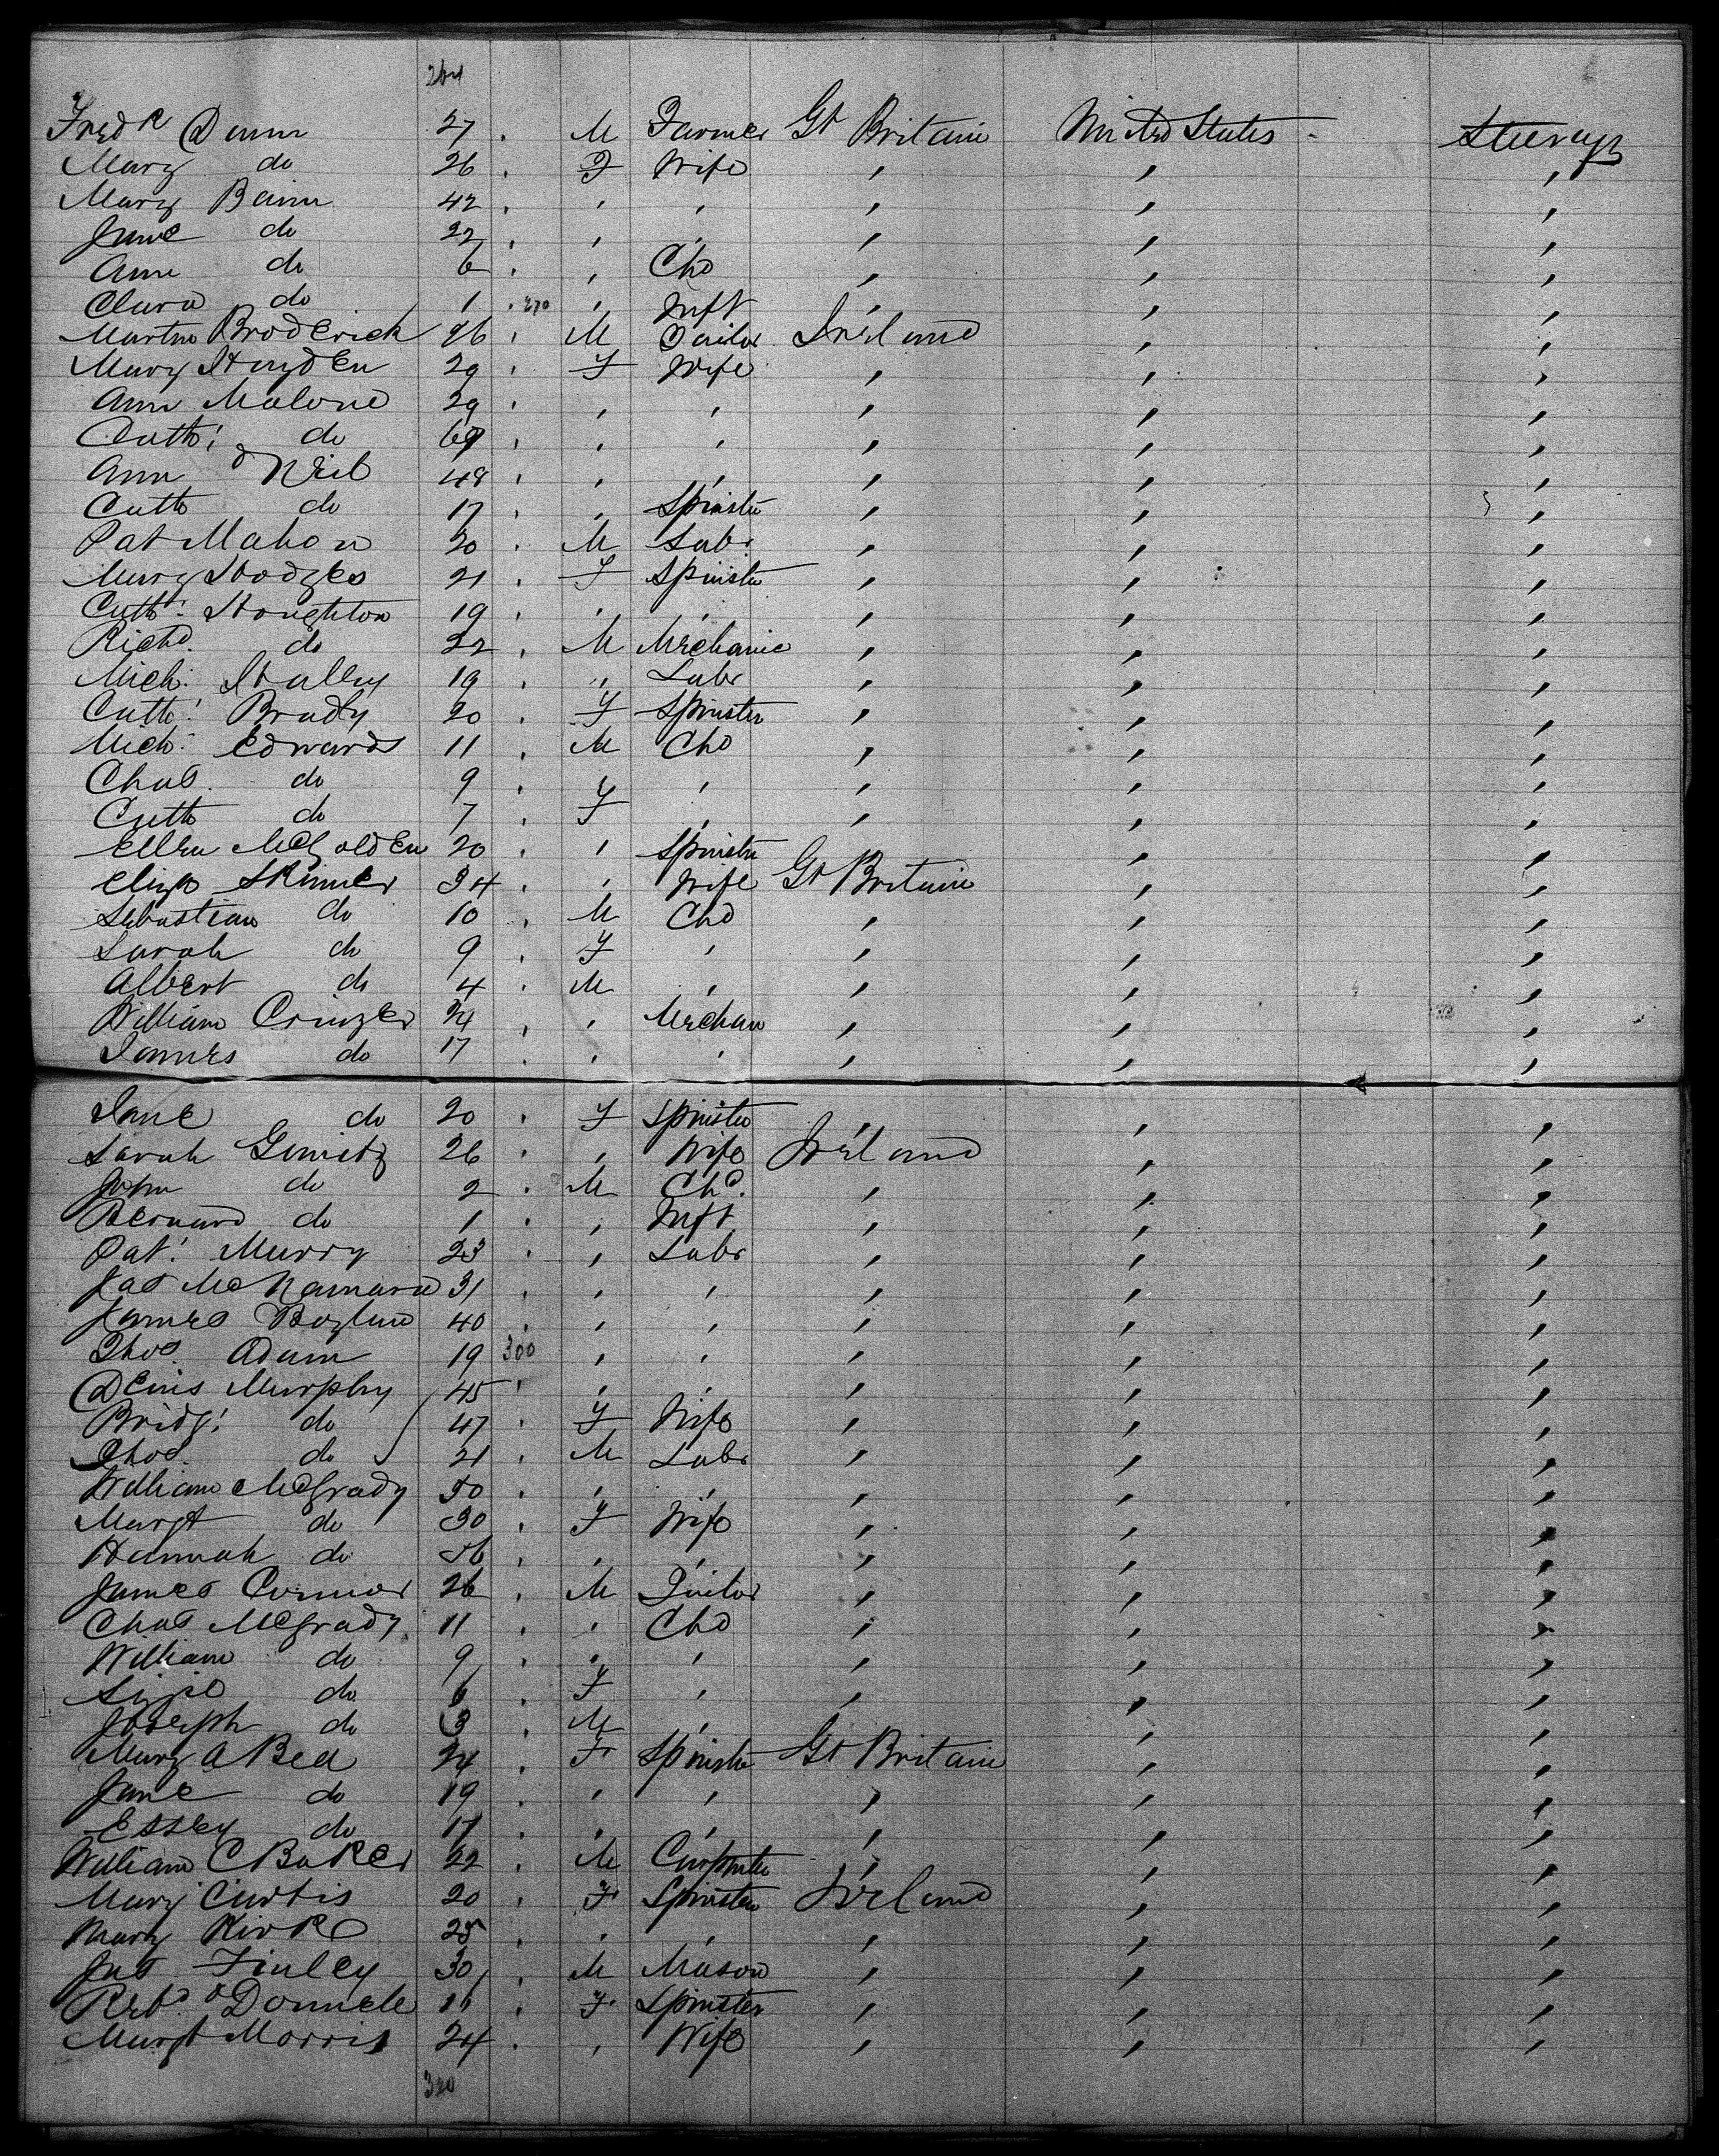 264
Fredk Dunn 27 . M Farmer Gt Britain United States - Steerage
Mary do 26 . F Wife , , ,
Mary Bann 42 . , , , , ,
Jane do 22 . , , , , ,
Ann do 6 . , Chd , , ,
Clara do 1 . 270 , Inft , , ,
Martin Broderick 46 . M Tailor Ireland , ,
Mary Hayden 29 . F Wife , , ,
Ann Malone 29 . , , , , ,
Cath: do 69 . , , , , ,
Ann O Neil 48 . , , , , ,
Cath do 17 . , Spinster , , ,
Pat Mahon 30 . M Labr , , ,
Mary Hodges 21 . F Spinster , , ,
Cath: Houghton 19 . , , , , ,
Richd. do 22 . M Mechanic , , ,
Mich: Halley 19 . " Labr , , ,
Cath: Brady 20 . F Spinster , , ,
Mich: Edwards 11 . M Chd , , ,
Chas. do 9 . F , , , ,
Cath do 7 . F , , , ,
Ellen McGolden 20 . , Spinster , ,
Eliza Skinner 34 . , Wife Gt Britain , ,
Sebastian do 10 . M Chd , , ,
Sarah do 9 . F , , , ,
Albert do 4 . M , , , ,
William 24 . , Mechan , , ,
James do 17 . , , , , ,
Jane do 20 . F Spinster , , ,
Sarah 26 . , Wife Ireland , ,
John do 2 . M Chd. , , ,
Bernard do 1 . , Inft , , ,
Pat: Murry 23 . , Labr , , ,
Jas McNamara 31 . , , , , ,
James Boylan 40 . , , , , ,
Thos. Adam 19 300 , , , , ,
Denis Murphy 45 . , , , , ,
Bridg: do 47 . F Wife , , ,
Thos. do 21 . M Labr , , ,
William McGrady 50 . , , , , ,
Margt do 30 . F Wife , , ,
Hannah do 56 . , , , , ,
James Connor 26 . M Tailor , , ,
Chas McGrady 11 . , Chd , , ,
William do 9 . , , , , ,
Lizzie do 6 . F , , , ,
Joseph do 3 . M , , , ,
Mary A Bell 24 . F Spinster Gt Britain , ,
Jane do 19 . , , , , ,
Essey do 17 . , , , , ,
William C Baker 22 . M Carpenter , , ,
Mary Curtis 20 . F Spinster Ireland , ,
Mary Kirke 25 . , , , , ,
Jas Finley 30 . M Mason , , ,
Rebd. O Donnele 16 . F Spinster , , ,
Margt Morris 24 . , Wife , , ,
320